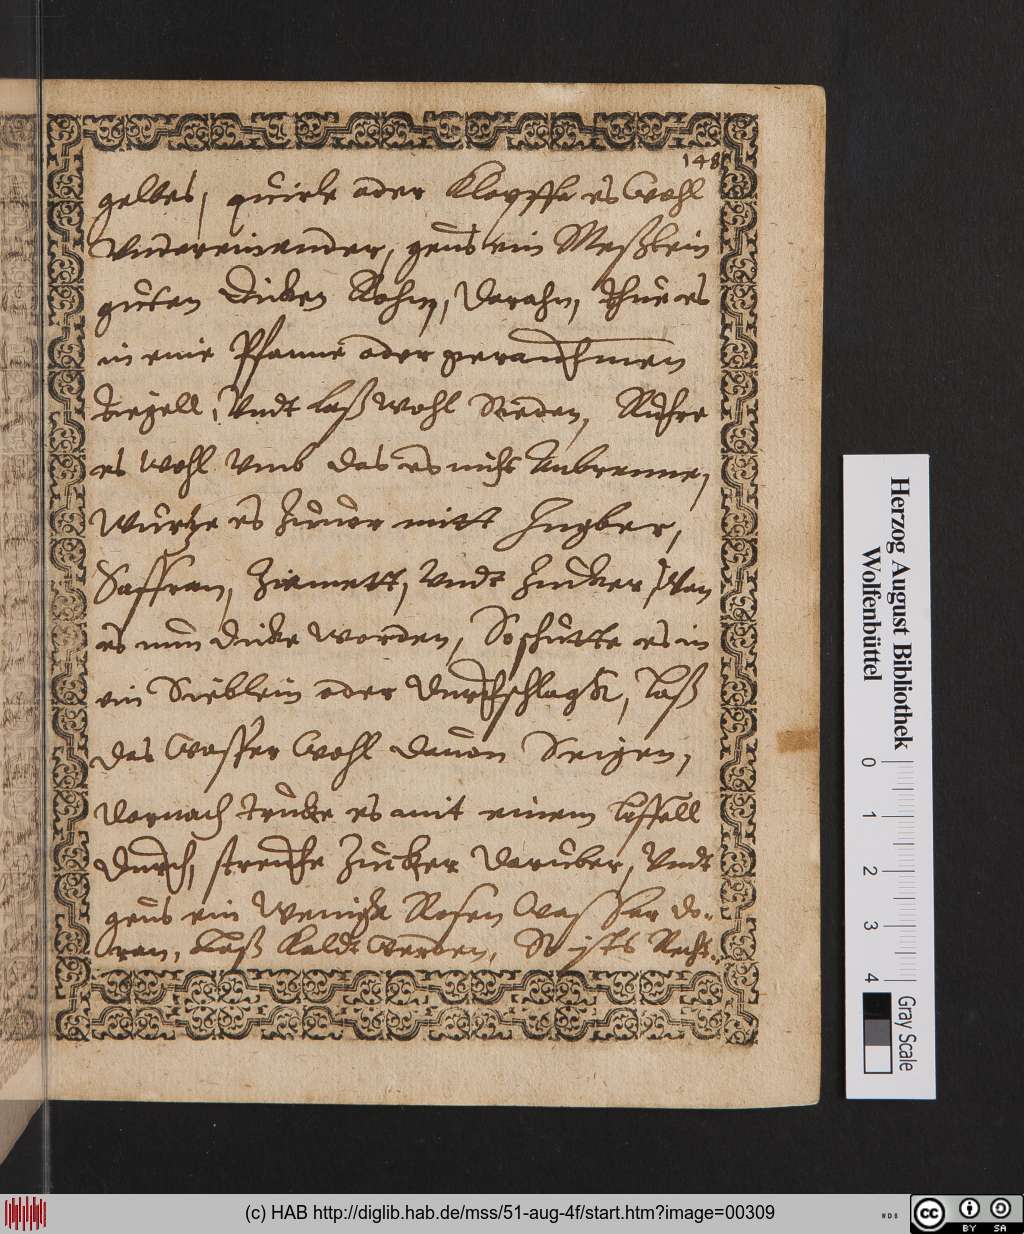 148
gelbes, quirle oder Klopffe es Wohl
Vndereinander, geus ein Meßlein
guten Dicken Rohm, darahn, thue es
in eine Pfanne oder geraumen
tiegell, Vndt laß wohl Sieden, Ruhre
es wohl Vmb das es nicht Anbrenne,
Wurtze es zuuor mitt Ingber,
Saffran, Zimett, Vndt Zucker, Wan
es nun dicke worden, So schutte es in
ein Sieblein oder Durchschlagk, laß
das Wasser Wohl dauon Seigen,
darnach trucke es mit einem Löffell
durch, streuche Zucker daruber, Vndt
geus ein Wenigk Rosen Wasser do-
ran, Laß Kaldt Werden, So ists Recht.
Herzog August Bibliothek
Wolfenbüttel
0 1 2 3 4
Gray Scale
(c) HAB http://diglib.hab.de/mss/51-aug-4f/start.htm?image=00309
WDB
cc BY SA